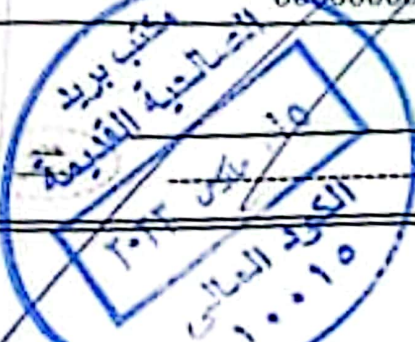 مكتب بريد
الصالحية القديمة
٢٠٢٣
الكود المالى
١٠٠١٥